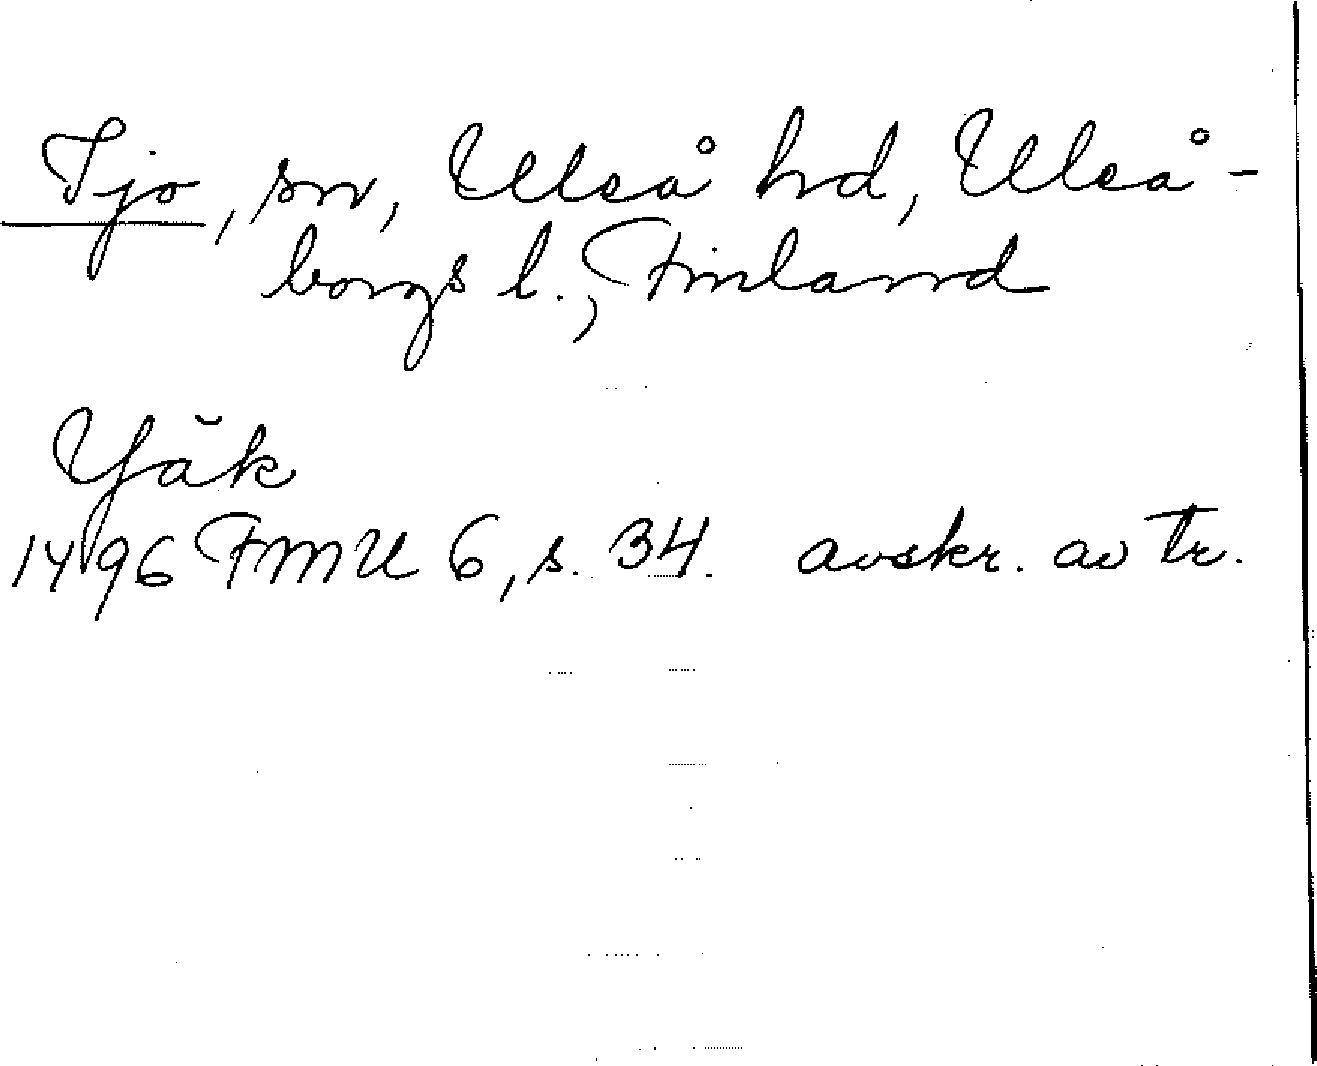 Ijo, sn, Uleå hd, Uleå-
borgs l., Finland
Yăk
1496 FMU 6, s. 34. avskr. av tr.